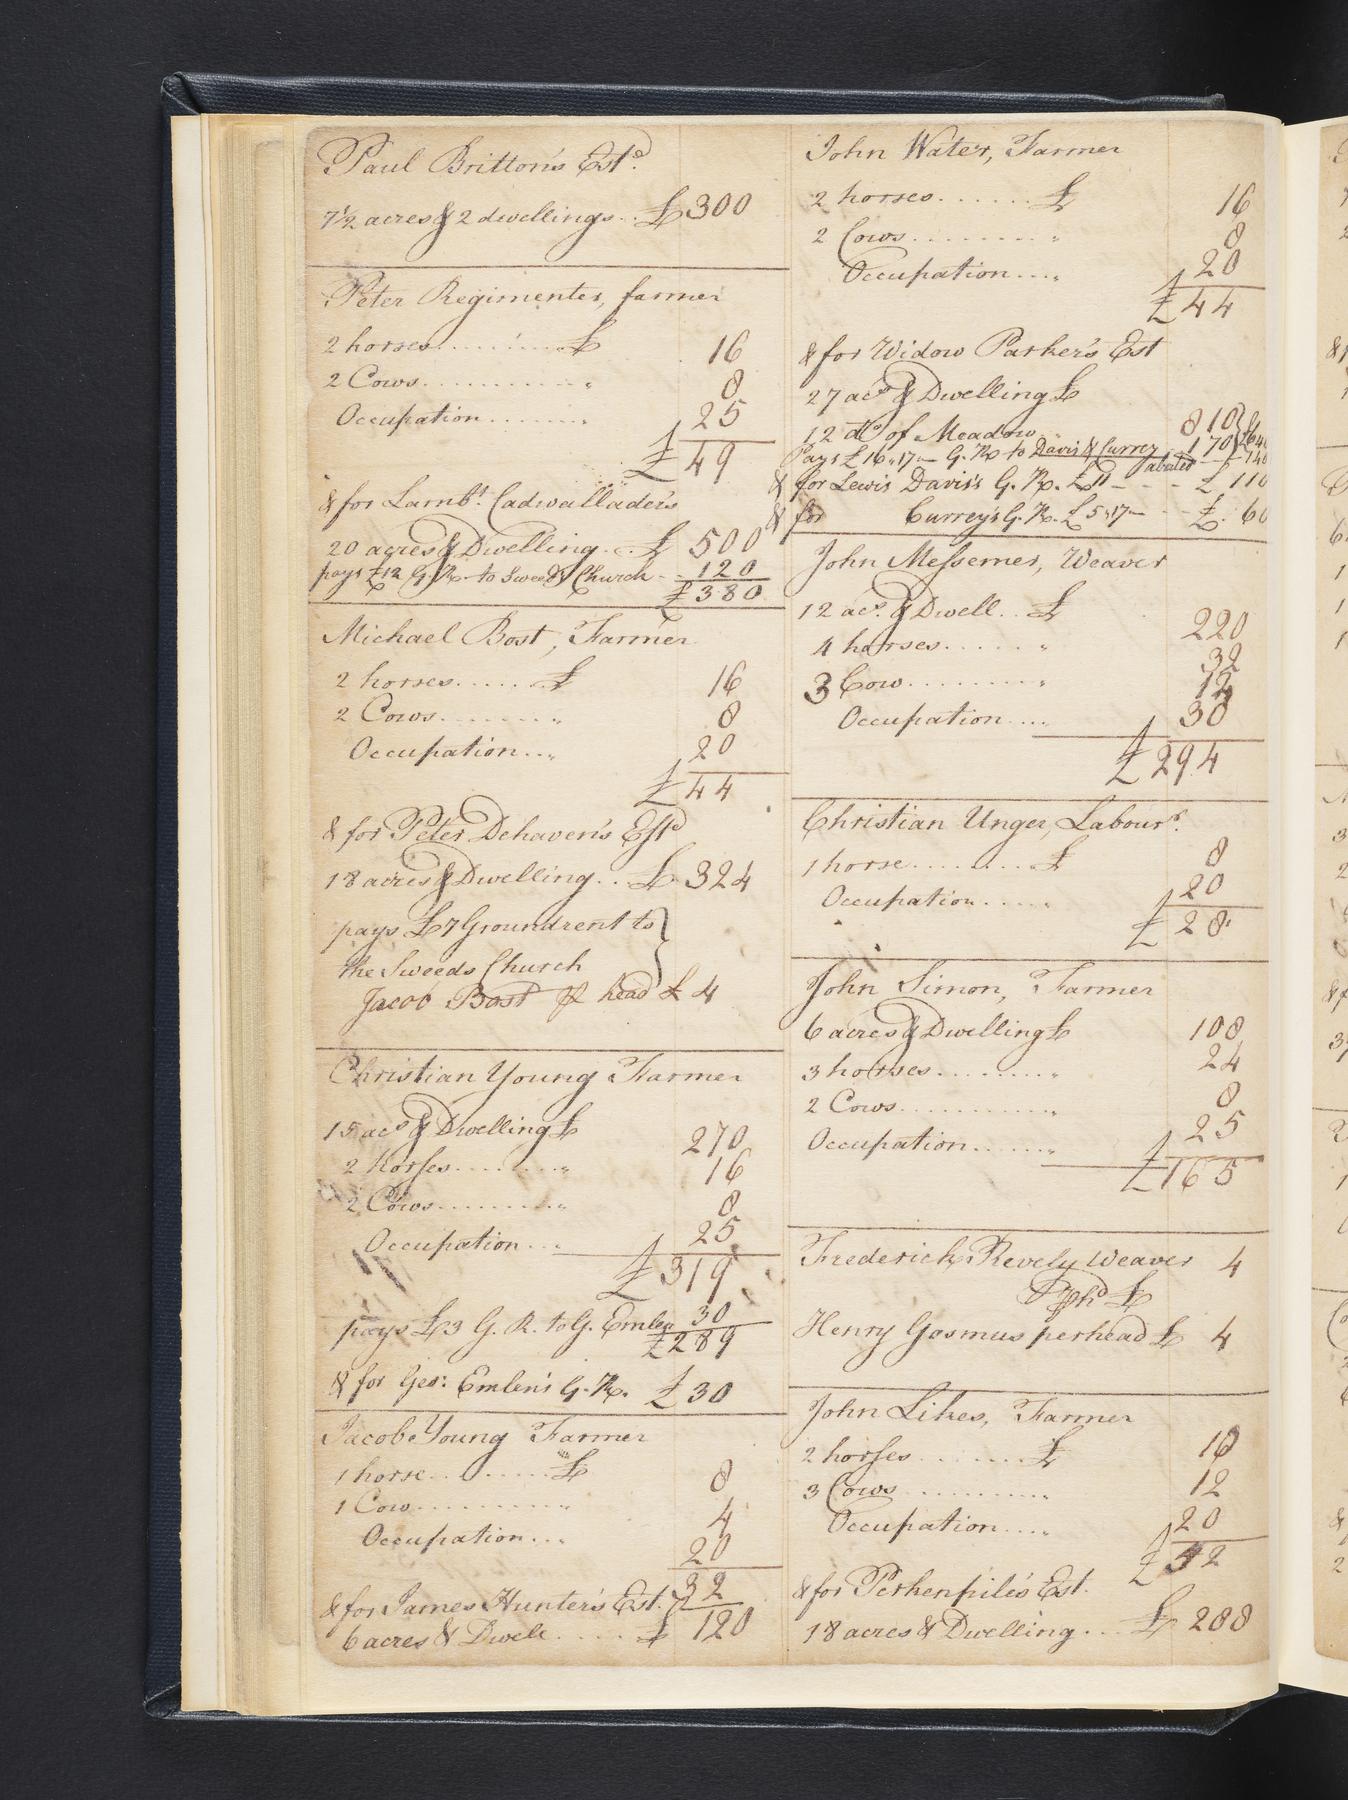 Paul Britton's Estd.
7½ acres & 2 dwellings .. £ 300
Peter Regimenter, farmer
2 horses ........... £ 16
2 Cows ............ " 8
Occupation ........ " 25
£ 49
& for Lambt. Cadwallader's
20 acres & Dwelling ... £ 500
pays £12 G. R. to Sweeds Church - .. 120
£ 380
Michael Bost, Farmer
2 horses ...... £ 16
2 Cows ........ " 8
Occupation ... " 20
£ 44
& for Peter Dehaven's Estd
18 acres & Dwelling .. £ 324
pays £7 Groundrent to
the Sweeds Church
Jacob Bost P head £ 4
Christian Young Farmer
15 acs & Dwelling £ 270
2 horses ........ " 16
2 Cows .......... " 8
Occupation ... 25
£ 319
pays £3 G. R. to G. Emlen 30
£ 289
& for Geo: Emlen's G. R. £ 30
Jacob Young Farmer
1 horse ......... £ 8
1 Cow .......... " 4
Occupation .... 20
32
& for James Hunter's Est.
6 acres & Dwell ...... £ 120
John Water, Farmer
2 horses ....... £ 16
2 Cows ......... " 8
Occupation .... " 20
£ 44
& for Widow Parker's Est
27 acs & Dwelling £
12 do of Meadow 810
Pays £16,,17 — G. R. to Davis & Currey 170
abated
& for Lewis Davis's G. R. £11 — - - - £ 110
& for Currey's G. R. £5,,17 — - - £. 60
John Messemer, Weaver
12 acs. & Dwell .. £ 220
4 horses ...... " 32
3 Cow ......... " 12
Occupation .... 30
£ 294
Christian Unger, Labourr.
1 horse .......... £ 8
Occupation ...... 20
£ 28
John Simon, Farmer
6 acres & Dwelling £ 108
3 horses ......... " 24
2 Cows ............ " 8
Occupation ....... " 25
£ 165
Frederick Revely Weaver 4
P hd £
Henry Gosmus per head £ 4
John Likes, Farmer
2 horses ......... £ 16
3 Cows ........... " 12
Occupation .... " 20
£ 52
& for Perkenpile's Est.
18 acres & Dwelling ... £ 288